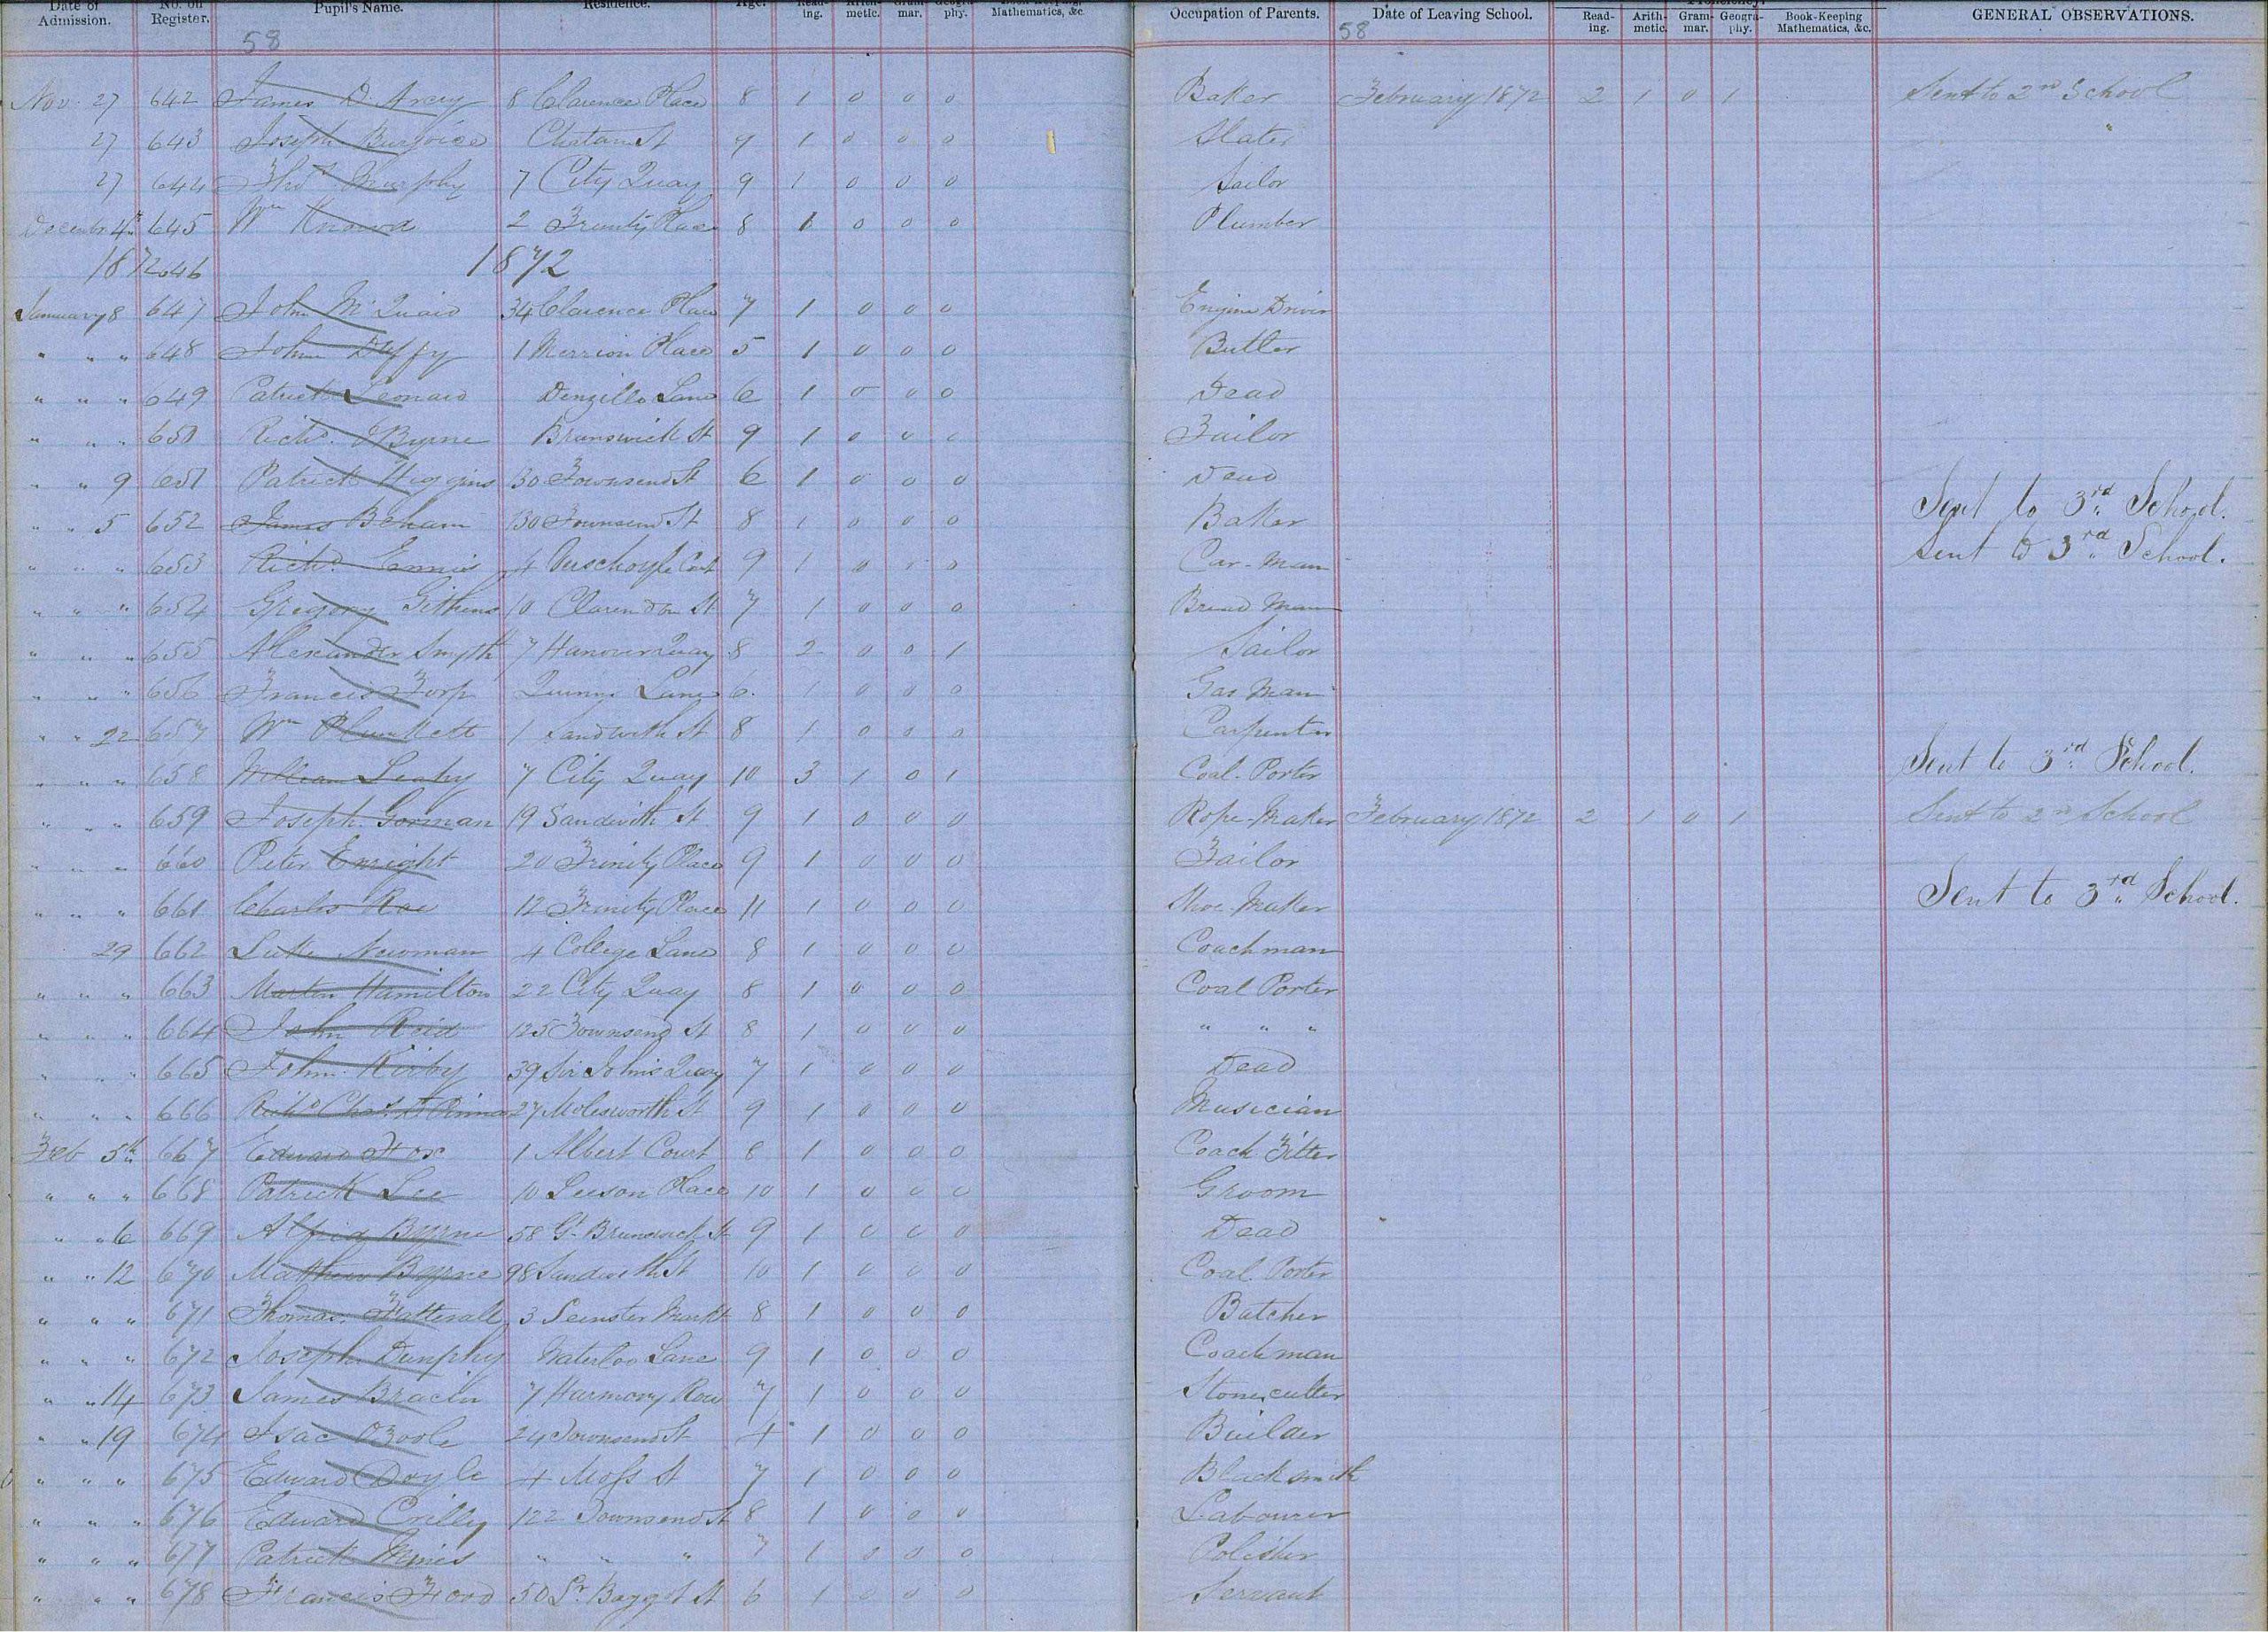 Date of Admission. No. on Register. Pupil's Name. Residence. Age. Read-ing. Arith-metic. Gram-mar. Geogra-phy. Book-Keeping Mathematics, &c. Occupation of Parents. Date of Leaving School. Proficiency. Read-ing. Arith-metic. Gram-mar. Geogra-phy. Book-Keeping Mathematics, &c. GENERAL OBSERVATIONS.
58 58
Nov. 27 642 James D'Arcy 8 Clarence Place 8 1 0 0 0 Baker February 1872 2 1 0 1 Sent to 2nd School
27 643 Joseph Chatam St 9 1 0 0 0 Slater
27 644 Thos Murphy 7 City Quay 9 1 0 0 0 Sailor
Decembr 4th 645 Wm 2 Trinity Place 8 1 0 0 0 Plumber
1872 646 1872
January 8 647 John McQuaid 34 Clarence Place 7 1 0 0 0 Engine Driver
" " " 648 John Duffy 1 Merrion Place 5 1 0 0 0 Butler
" " " 649 Patrick Leonard Denzille Lane 6 1 0 0 0 Dead
" " " 650 Richd. O'Byrne Brunswick St 9 1 0 0 0 Tailor
" " 9 651 Patrick Higgins 30 Townsend St 6 1 0 0 0 Dead
" " 5 652 James Beham 130 Townsend St 8 1 0 0 0 Baker Sent to 3rd School.
" " " 653 Richd. Ennis 4 Verschoyle Cort 9 1 0 0 0 Car-Man Sent to 3rd School.
" " " 654 Gregory Githens 10 Clarendon St 7 1 0 0 0 Bread Man
" " " 655 Alexander Smyth 7 Hanover Quay 8 2 0 0 1 Sailor
" " " 656 Francis Torp Quinns Lane 6 1 0 0 0 Gas Man
" " 22 657 Wm Plunkett 1 Sandwith St 8 1 0 0 0 Carpenter
" " " 658 William Leahy 7 City Quay 10 3 1 0 1 Coal-Porter Sent to 3rd School.
" " " 659 Joseph Gorman 19 Sandwith St 9 1 0 0 0 Rope-Maker February 1872 2 1 0 1 Sent to 2nd School
" " " 660 Peter Enright 20 Trinity Place 9 1 0 0 0 Tailor
" " " 661 Charles Roe 12 Trinity Place 11 1 0 0 0 Shoe Maker Sent to 3rd School.
29 662 Luke Newman 4 College Lane 8 1 0 0 0 Coachman
" " " 663 Martin Hamilton 22 City Quay 8 1 0 0 0 Coal Porter
" " " 664 John Reid 125 Townsend St 8 1 0 0 0 " " "
" " " 665 John Kirby 39 Sir John's Quay 7 1 0 0 0 Dead
" " " 666 Richd Chas. 27 Molesworth St 9 1 0 0 0 Musician
Feb 5th 667 Edward Fox 1 Albert Court 8 1 0 0 0 Coach Fitter
" " " 668 Patrick Lee 10 Leeson Place 10 1 0 0 0 Groom
" " 6 669 Alfred Byrne 58 Gt Brunswick St 9 1 0 0 0 Dead
" " 12 670 Mathew Byrne 98 Sandwith St 10 1 0 0 0 Coal Porter
" " " 671 Thomas Tattersall 3 Leinster Markt 8 1 0 0 0 Butcher
" " " 672 Joseph Dunphy Waterloo Lane 9 1 0 0 0 Coachman
" " 14 673 James Bracin 7 Harmony Row 7 1 0 0 0 Stone cutter
" " 19 674 Isac O'Toole 24 Townsend St 4 1 0 0 0 Builder
" " " 675 Edward Doyle 4 Moss St 7 1 0 0 0 Blacksmith
" " " 676 Edward Crilly 122 Townsend St 8 1 0 0 0 Labourer
" " " 677 Patrick " " " 7 1 0 0 0 Polisher
" " " 678 Francis Ford 50 Lr Baggot St 6 1 0 0 0 Servant